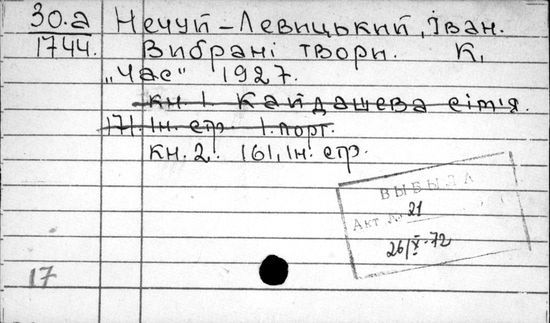 30.а Нечуй-Левицький, Іван.
1744. Вибрані твори. К,
„Час" 1927.
кн. 1. Кайдашева сім'я.
171. Ін. стр. 1. порт.
кн. 2. 161, Ін. стр.
ВЫБЫЛА
Акт № 21
26/X-72
17